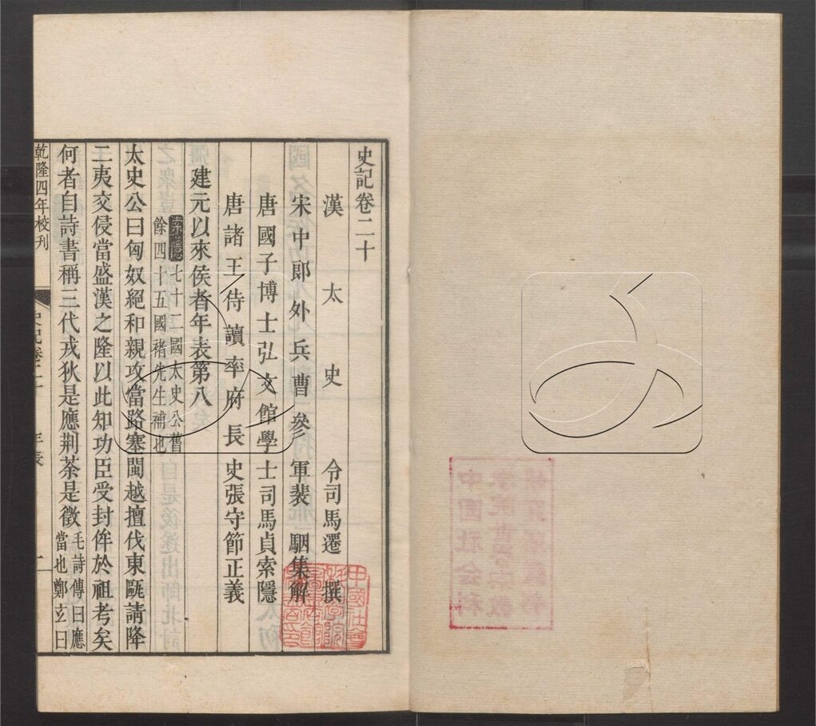 史記卷二十
漢太史令司馬遷撰
宋中郎外兵曹參軍裴駰集解
唐國子博士弘文館學士司馬貞索隱
唐諸王侍讀率府長史張守節正義
建元以來侯者年表第八
索隱七十二國太史公舊
餘四十五國褚先生補也
太史公曰匈奴絕和親攻當路塞閩越擅伐東甌請降
二夷交侵當盛漢之隆以此知功臣受封侔於祖考矣
何者自詩書稱三代戎狄是應荆荼是徵
毛詩傳曰應
當也鄭玄曰
乾隆四年校刊
史記卷二十
年表
一